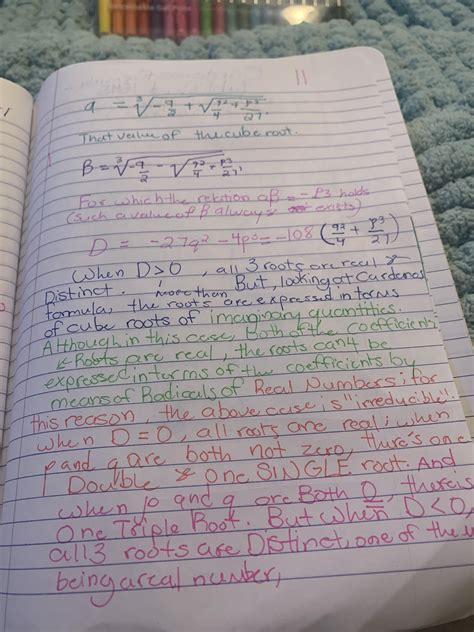 11
α = ∛-q/2 + √q²/4 + p³/27,
That value of the cube root.
β = ∛-q/2 - √q²/4 + p³/27,
For which the relation αβ = -P3 holds
(such a value of β always exists)
D = -27q² - 4p³ = -108 (q²/4 + p³/27)
When D>0, all 3 roots are real &
Distinct. But, looking at Cardanos
more than
formula, the roots are expressed in terms
of cube roots of imaginary quantities.
Although in this case, both of the coefficients
& Roots are real, the roots can4 be
expressed in terms of the coefficients by
means of Radicals of Real Numbers; for
this reason, the above case is "irreducible".
when D=0, all roots are real; when
p and q are both not zero, there's one
Double & one SINGLE root. And
when p and q are Both 0, there is
One Triple Root. But when D<0,
all 3 roots are Distinct, one of the
being a real number,